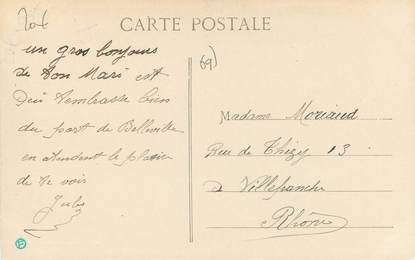 CARTE POSTALE
un gros bonjour
de ton Mari est
qui t'embrasse bien
du part de Belleville
en atendent le plaisir
de te voir
Jules
69)
Madame Moriaud
Rue de Thizy 13
à Villefranche
Rhône